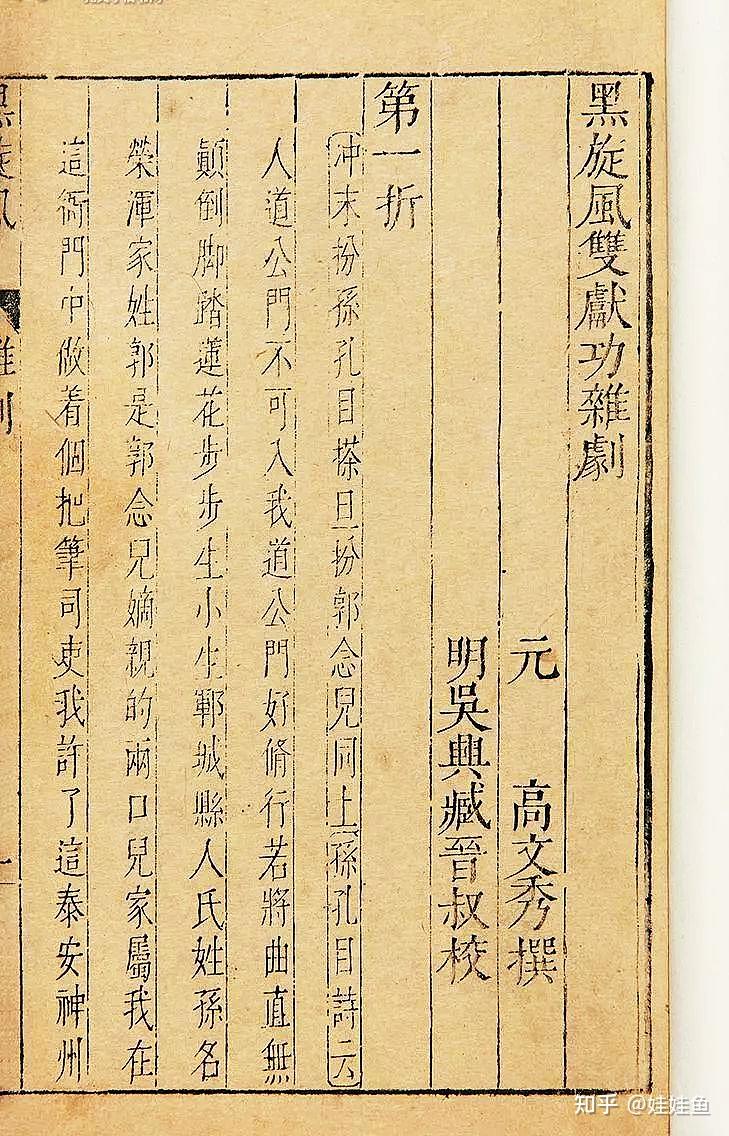 黑旋風雙獻功雜劇
元 高文秀撰
明吳興臧晉叔校
第一折
冲末扮孫孔目搽旦扮郭念兒同上孫孔目詩云
人道公門不可入我道公門好脩行若將曲直無
顛倒脚踏蓮花步步生小生鄆城縣人氏姓孫名
榮渾家姓郭是郭念兒嫡親的兩口兒家屬我在
這衙門中做着個把筆司吏我許了這泰安神州
知乎 @娃娃鱼